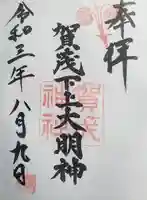 奉拝
賀茂下上大明神
賀茂
神社
令和三年八月九日